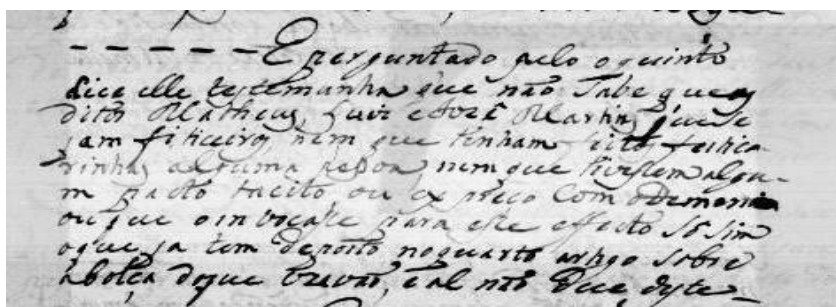 - - - - - - E perguntado pelo o quinto
dice elle testemunha que não Sabe que os
ditos Matheus, Luis e Joze Martins, que se
jam fiticeiros, nem que tinham feito fetica-
rinhas alguma pesoa, nem que tivesem algu-
m pacto tacito ou expreço Com o Demonio
ou que o invocase para este effecto So sim
o que ja tem deposto no quarto artigo Sobre
a bolça do que trazão, e al não Dice deste